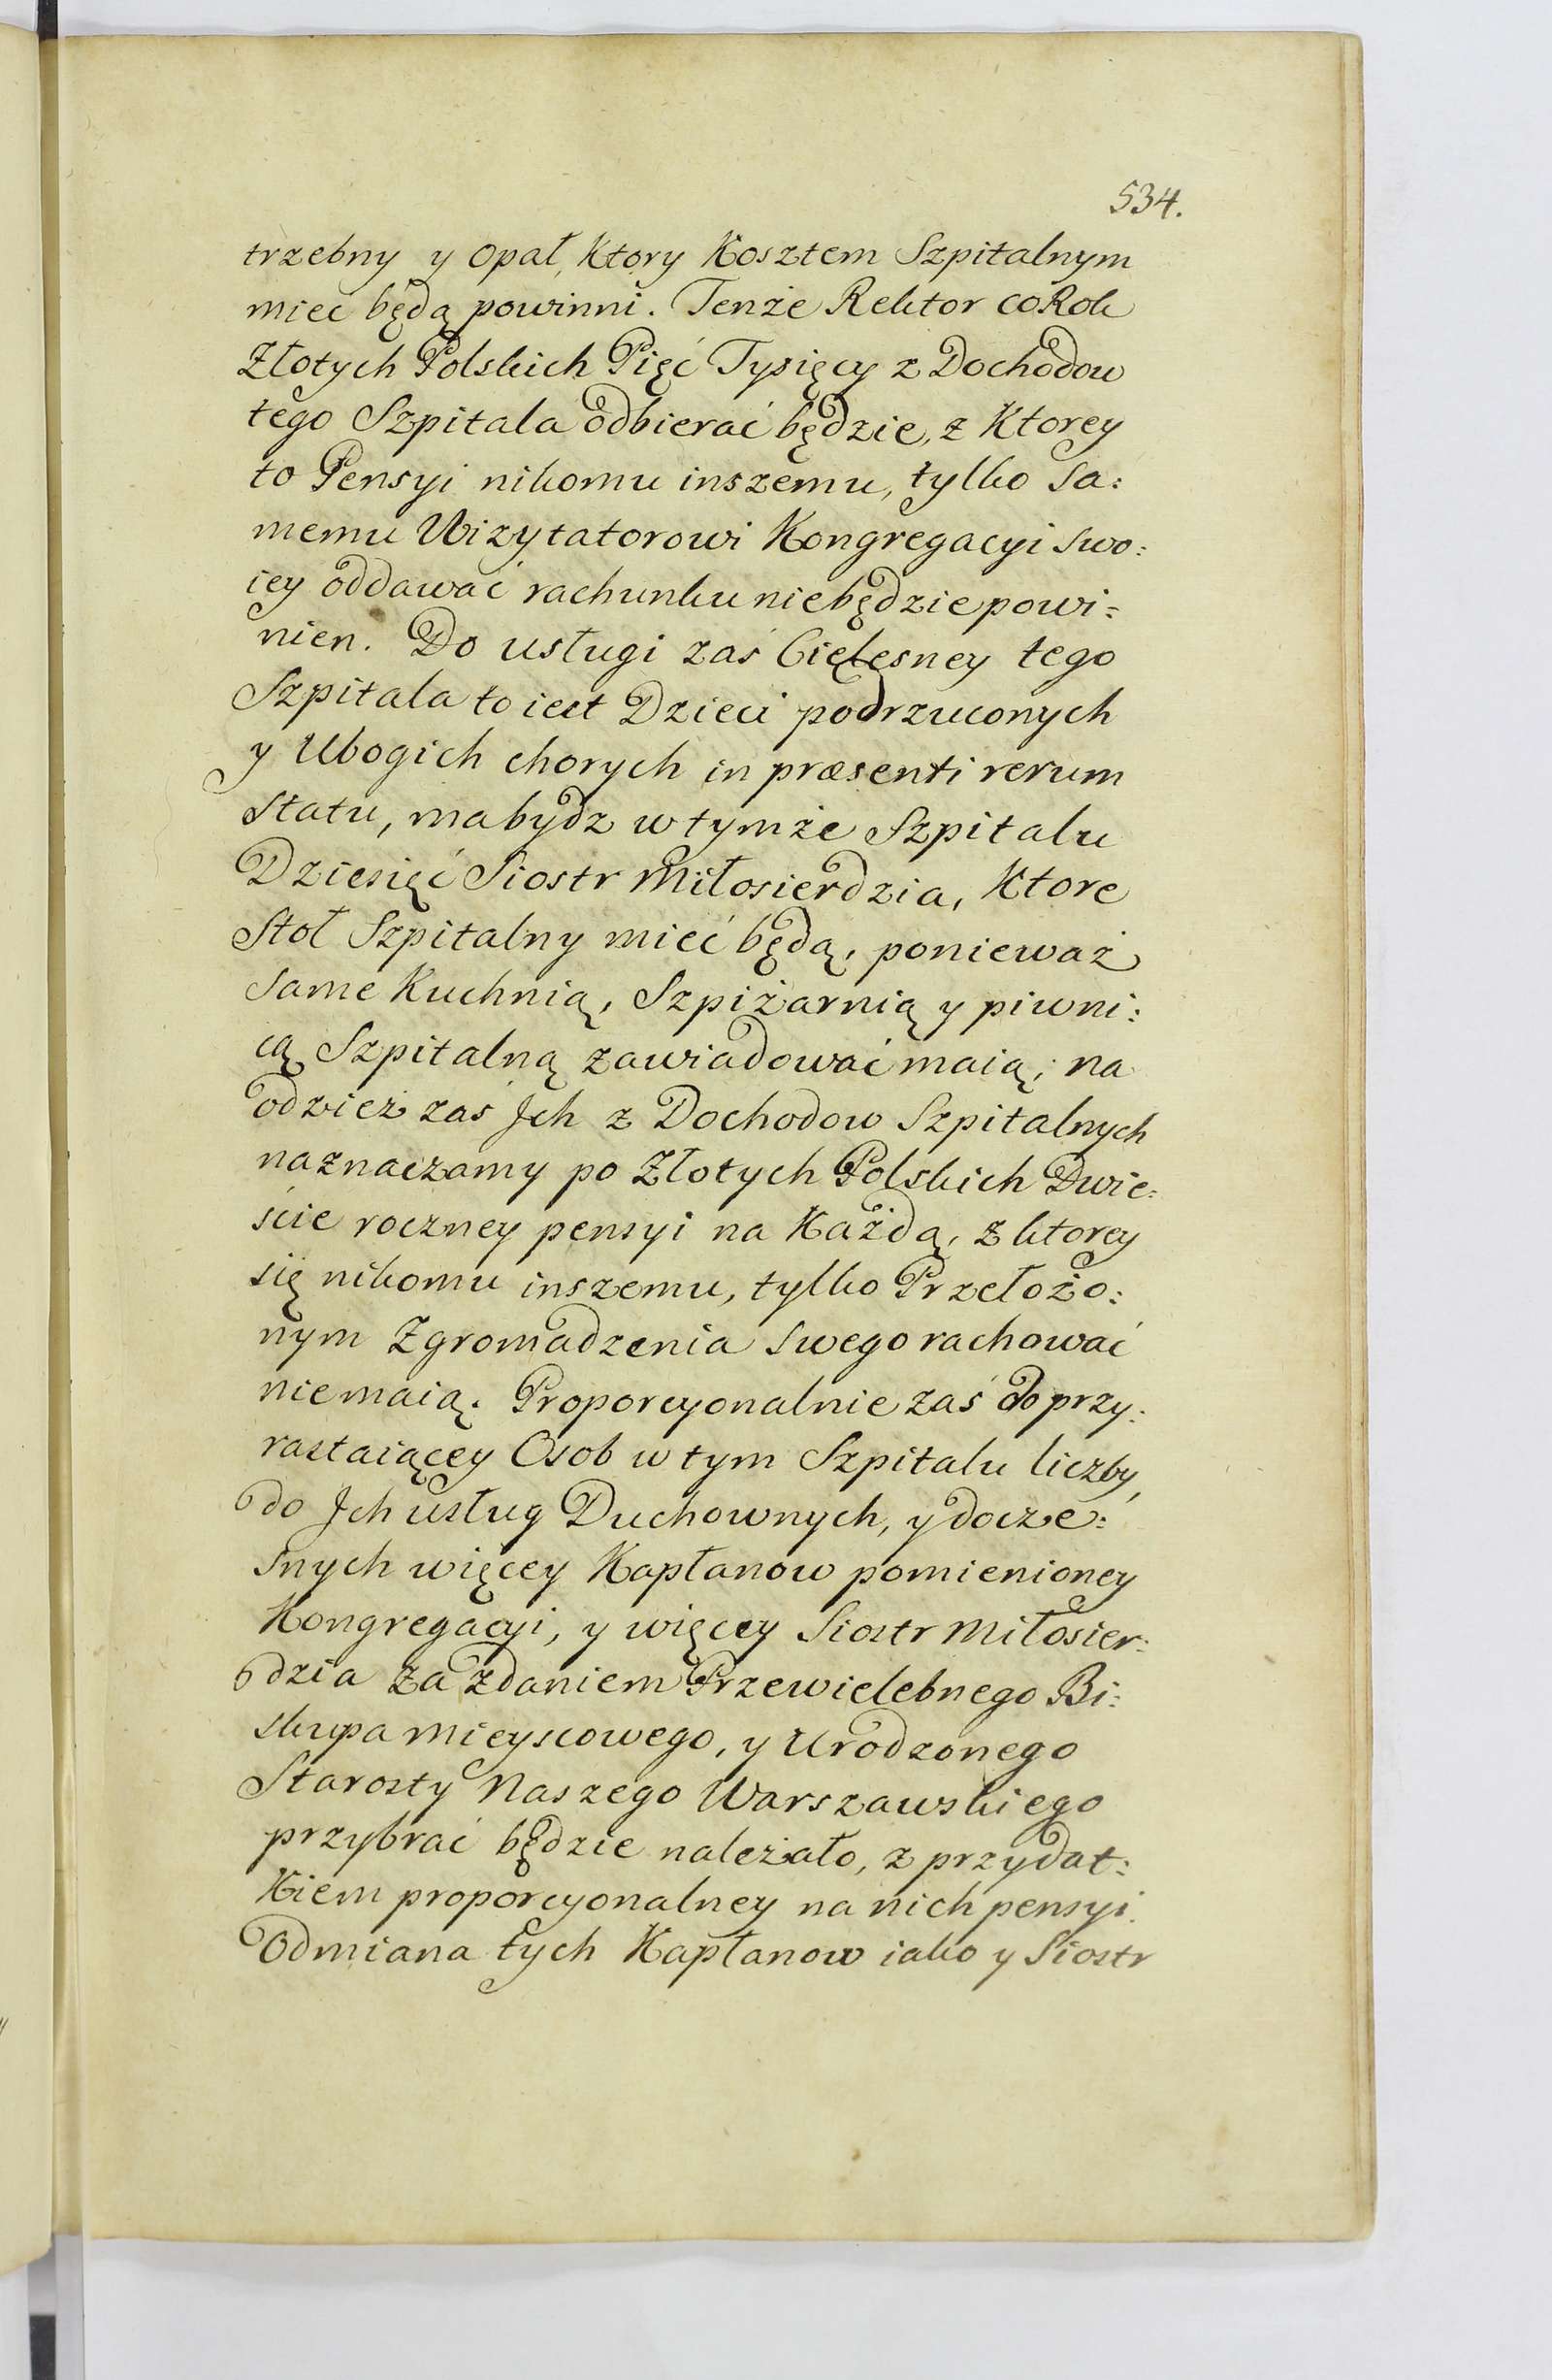 534.
trzebny y Opał, Ktory Kosztem Szpitalnym
miec będą powinni. Tenże Rektor co Rok
Złotych Polskich Pięć Tysięcy z Dochodow
tego Szpitala odbierać będzie, z Ktorey
to Pensyi nikomu inszemu, tylko Sa:
memu Wizytatorowi Kongregacyi swo:
iey oddawać rachunku niebędzie powi:
nien. Do usługi zaś Cielesney tego
Szpitala to iest Dzieci podrzuconych
y Ubogich chorych in præsenti rerum
statu, ma bydz w tymże Szpitalu
Dziesięć Siostr Miłosierdzia, Ktore
Stoł Szpitalny mieć będą, ponieważ
same Kuchnią, Szpiżarnią y piwni:
cą Szpitalną zawiadować maią; na
odzież zaś Jch z Dochodow Szpitalnych
naznaczamy po Złotych Polskich Dwie:
ście roczney pensyi na Każdą, z ktorey
się nikomu inszemu, tylko Przełożo:
nym Zgromadzenia swego rachować
niemaią. Proporcyonalnie zaś do przy:
rastaiącey Osob w tym Szpitalu liczby,
do Jch usług Duchownych, y docze:
snych więcey Kapłanow pomienioney
Kongregacyi, y więcey Siostr Miłosier:
dzia za zdaniem Przewielebnego Bi:
skupa mieyscowego, y Urodzonego
Starosty Naszego Warszawskiego
przybrać będzie należało, z przydat:
Kiem proporcyonalney na nich pensyi.
Odmiana tych Kapłanow iako y Siostr